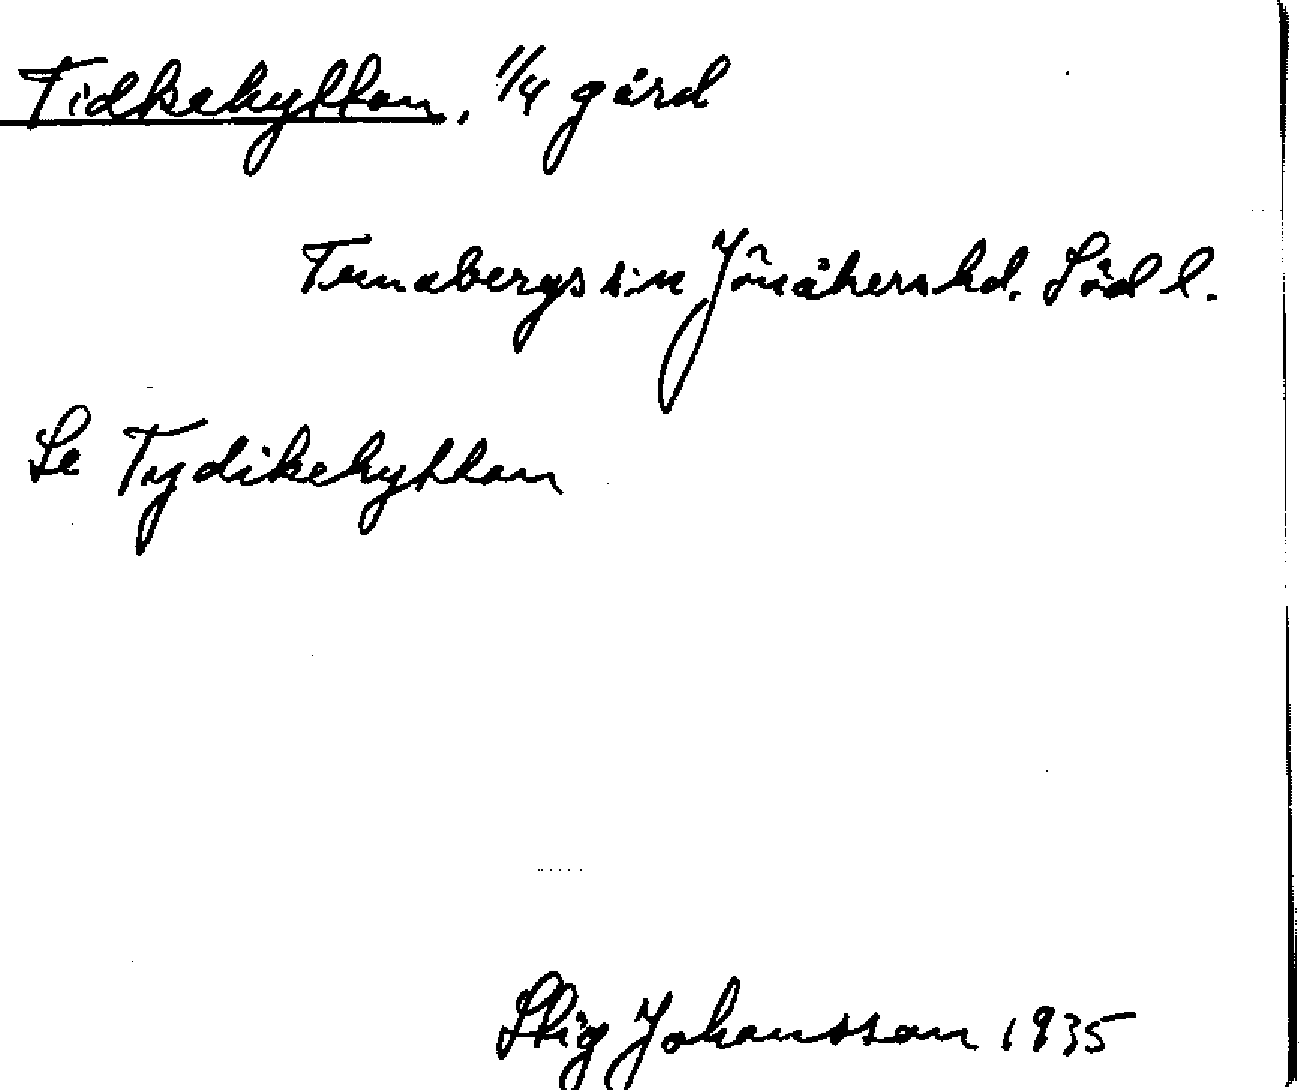 Tidkehyttan, 1/4 gård
Tunabergs sn Jönåkers hd. Södl.
Se Tydikehyttan
Stig Johansson 1935